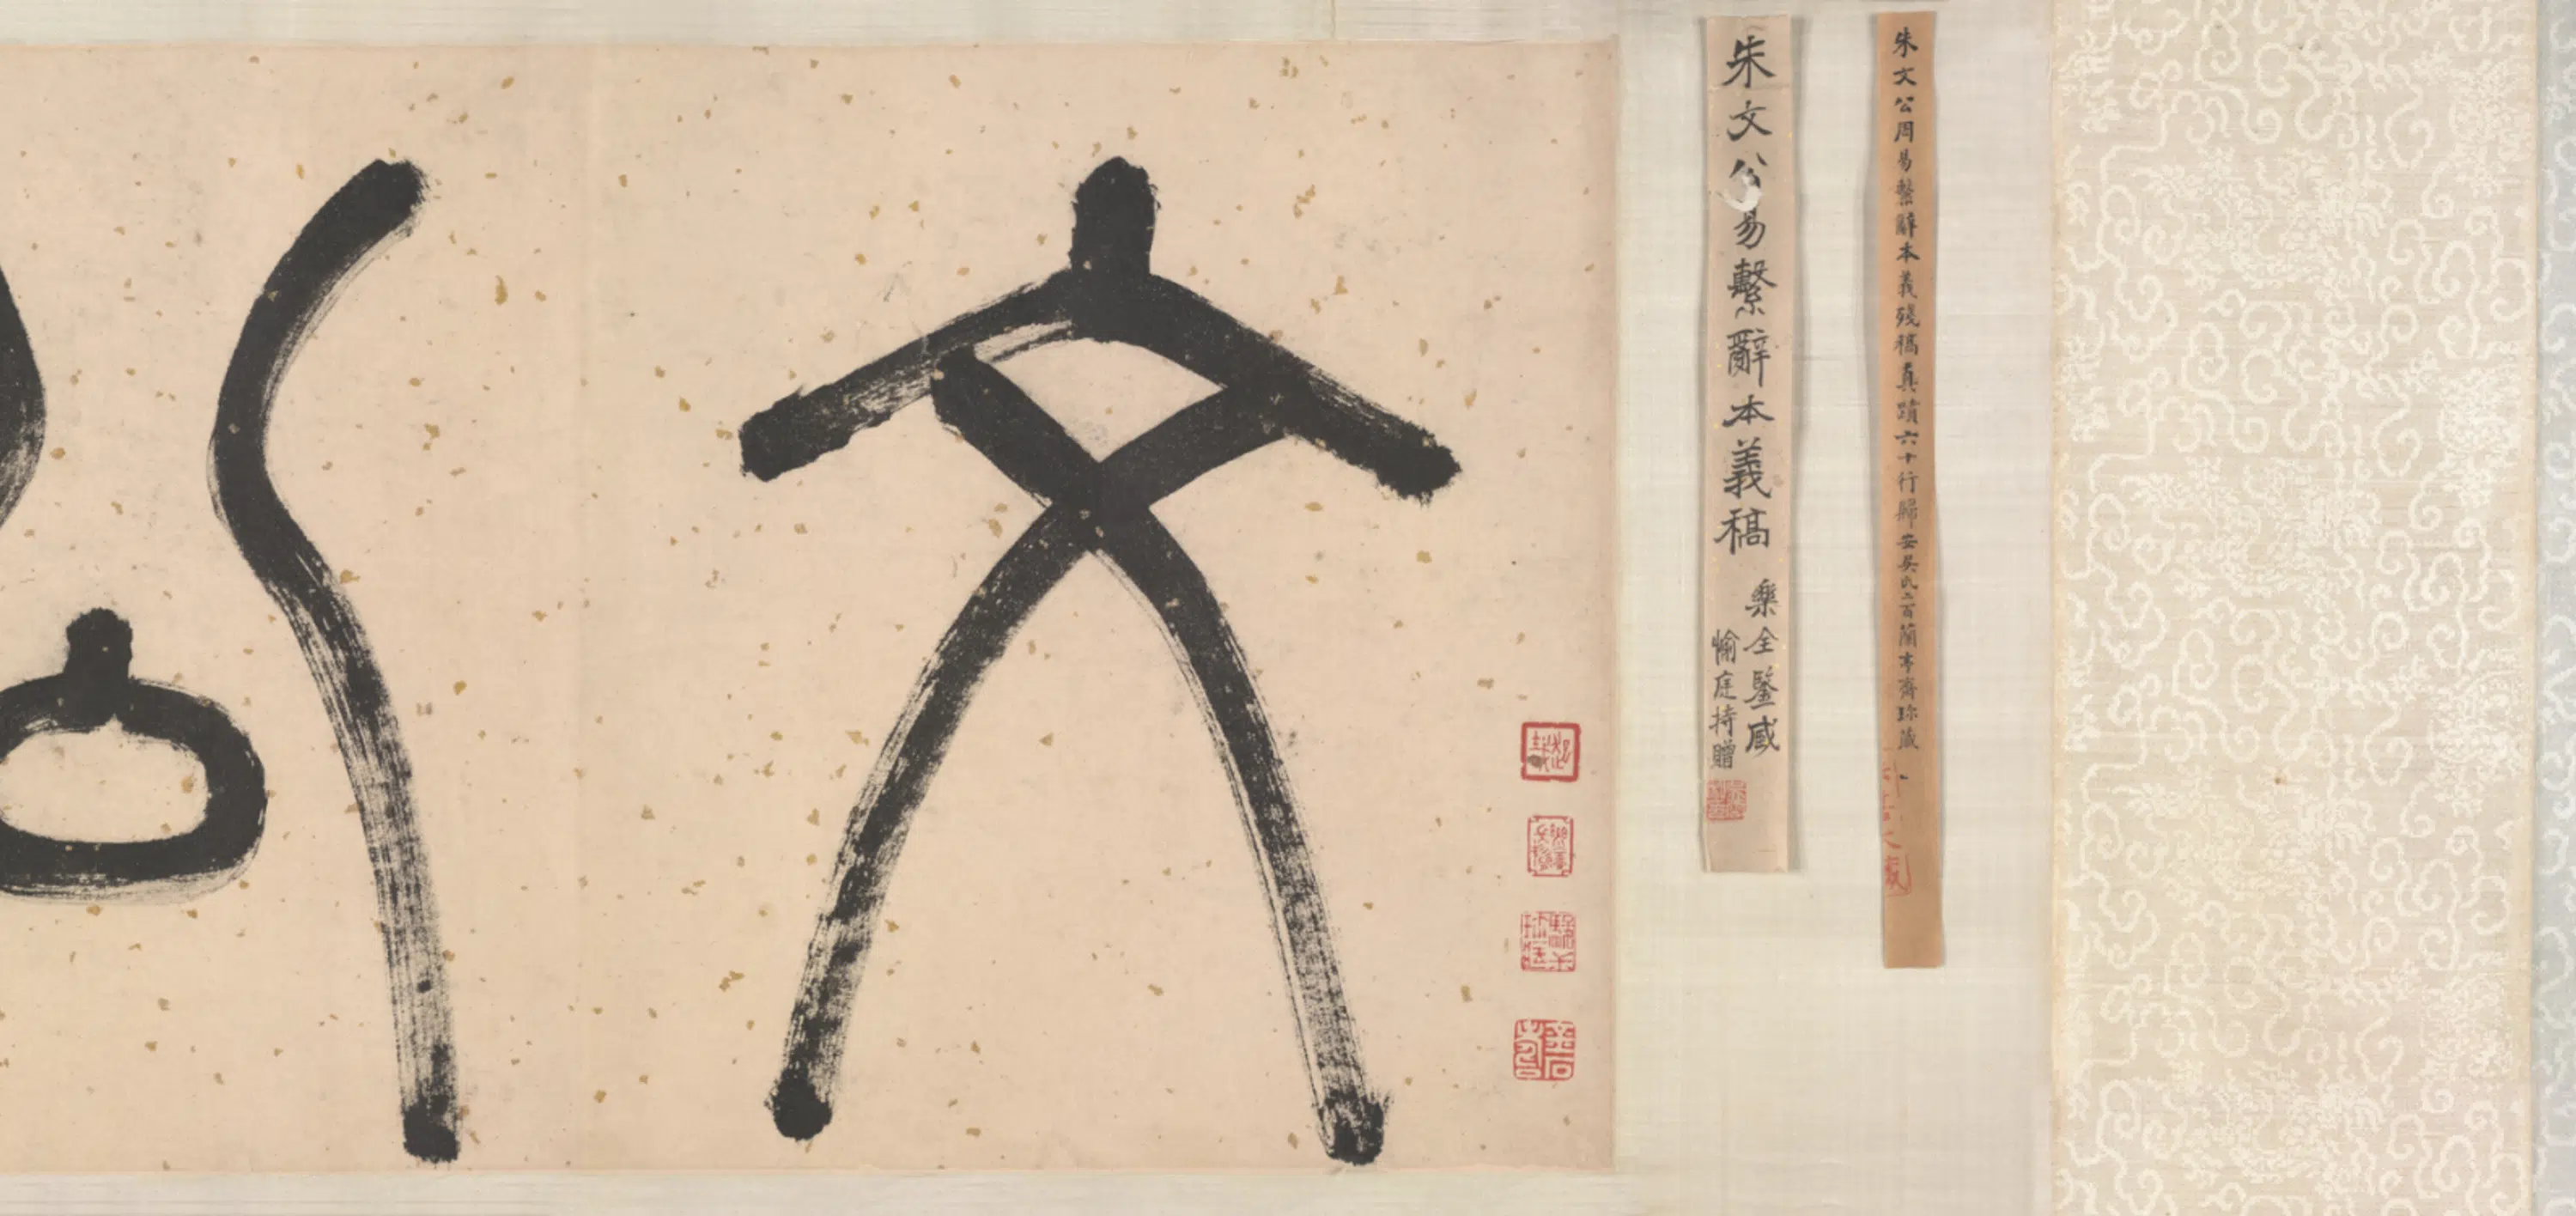 朱文公周易繫辭本義殘稿真蹟六十行歸安吳氏二百蘭亭齋珎藏
朱文公易繫辭本義稿
樂全鑒藏
愉庭持贈
文
公